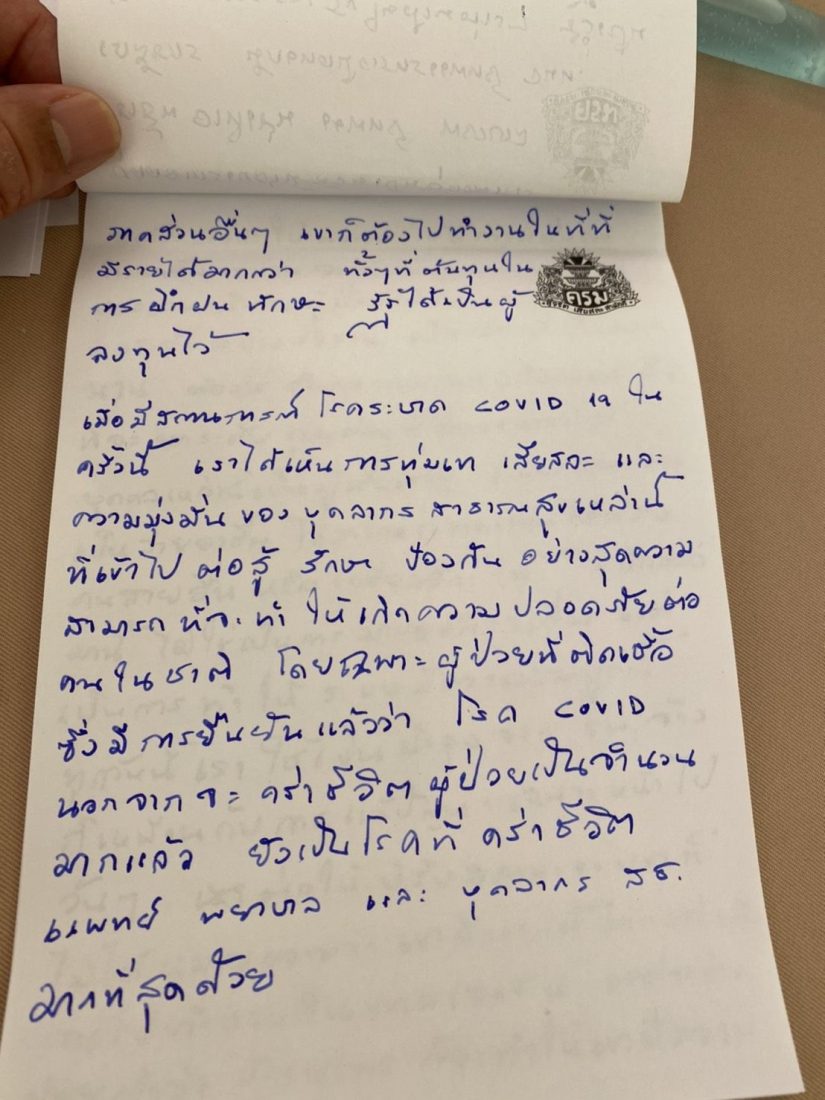 ภาคส่วนอื่นๆ เขาก็ต้องไปทำงานในที่ที่
มีรายได้มากกว่า ทั้งๆที่ต้นทุนใน
การฝึกฝน ทักษะ รัฐได้เป็นผู้
ลงทุนไว้
ครม
เมื่อมีสถานการณ์ โรคระบาด COVID 19 ใน
ครั้งนี้ เราได้เห็นการทุ่มเท เสียสละ และ
ความมุ่งมั่น ของ บุคลากร สาธารณสุขเหล่านี้
ที่เข้าไป ต่อสู้ รักษา ป้องกัน อย่างสุดความ
สามารถ ที่จะทำ ให้เกิดความปลอดภัยต่อ
คนในชาติ โดยเฉพาะผู้ป่วยที่ติดเชื้อ
ซึ่งมีการยืนยันแล้วว่า โรค COVID
นอกจากจะ คร่าชีวิต ผู้ป่วยเป็นจำนวน
มากแล้ว ยังเป็นโรคที่ คร่าชีวิต
แพทย์ พยาบาล และ บุคลากร สธ.
มากที่สุดด้วย